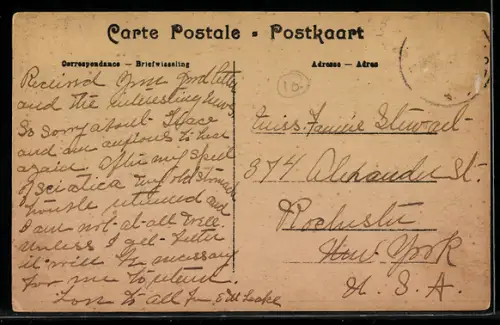 Carte Postale - Postkaart
Correspondance - Briefwisseling
Adresse - Adres
Received your good letter
and the interesting news.
So sorry about Grace
and am anxious to hear
again. After my spell
of sciatica my old stomach
trouble returned and
I am not-at-all well.
Unless I get better
it will be necessary
for me to return.
Love to all
16
Miss. Fannie Stewart
374 Alexander St.
Rochester
New York
U. S. A.